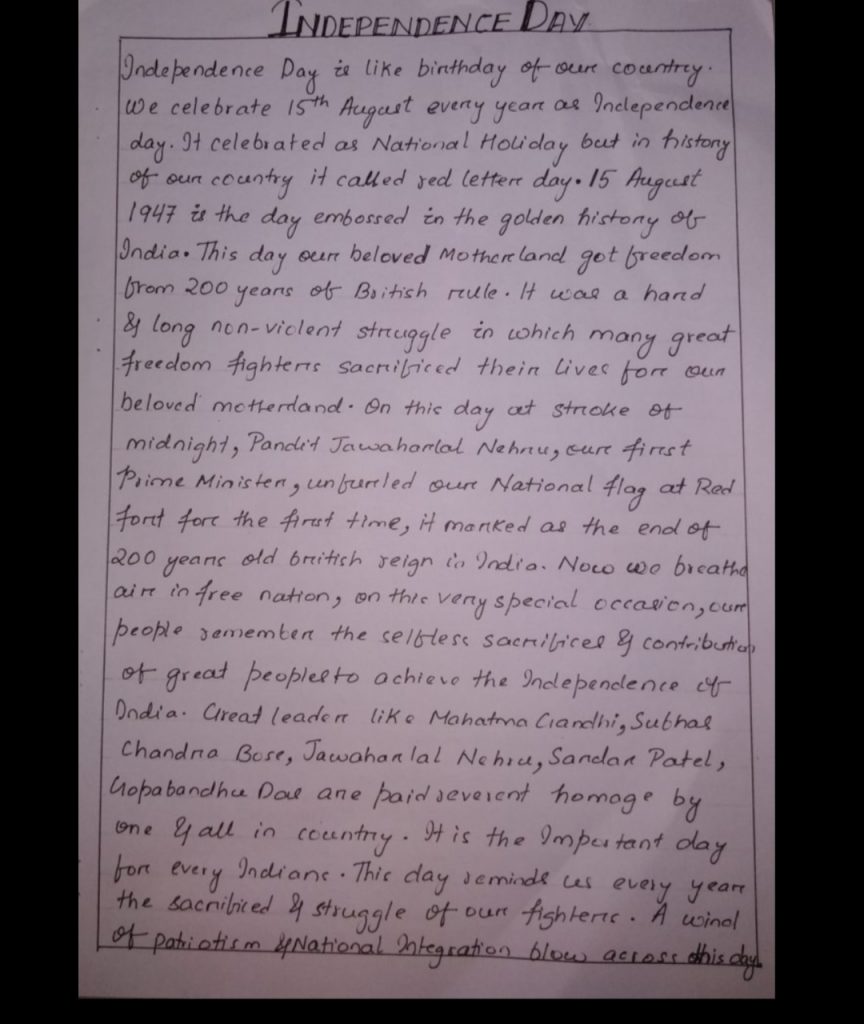 INDEPENDENCE DAY
Independence Day is like birthday of our country.
We celebrate 15th August every year as Independence
day. It celebrated as National Holiday but in history
of our country it called red letter day. 15 August
1947 is the day embossed in the golden history of
India. This day our beloved Motherland got freedom
from 200 years of British rule. It was a hard
& long non-violent struggle in which many great
freedom fighters sacrificed their lives for our
beloved motherland. On this day at stroke of
midnight, Pandit Jawaharlal Nehru, our first
Prime Minister, unfurled our National flag at Red
fort for the first time, it marked as the end of
200 years old british reign in India. Now we breathe
air in free nation, on this very special occasion, our
people remember the selfless sacrifices & contribution
of great peoples to achieve the Independence of
India. Great leader like Mahatma Gandhi, Subhas
Chandra Bose, Jawaharlal Nehru, Sardar Patel,
Gopabandhu Das are paid reverent homage by
one & all in country. It is the Important day
for every Indians. This day reminds us every year
the sacrificed & struggle of our fighters. A wind
of patriotism & National Integration blow across this day.